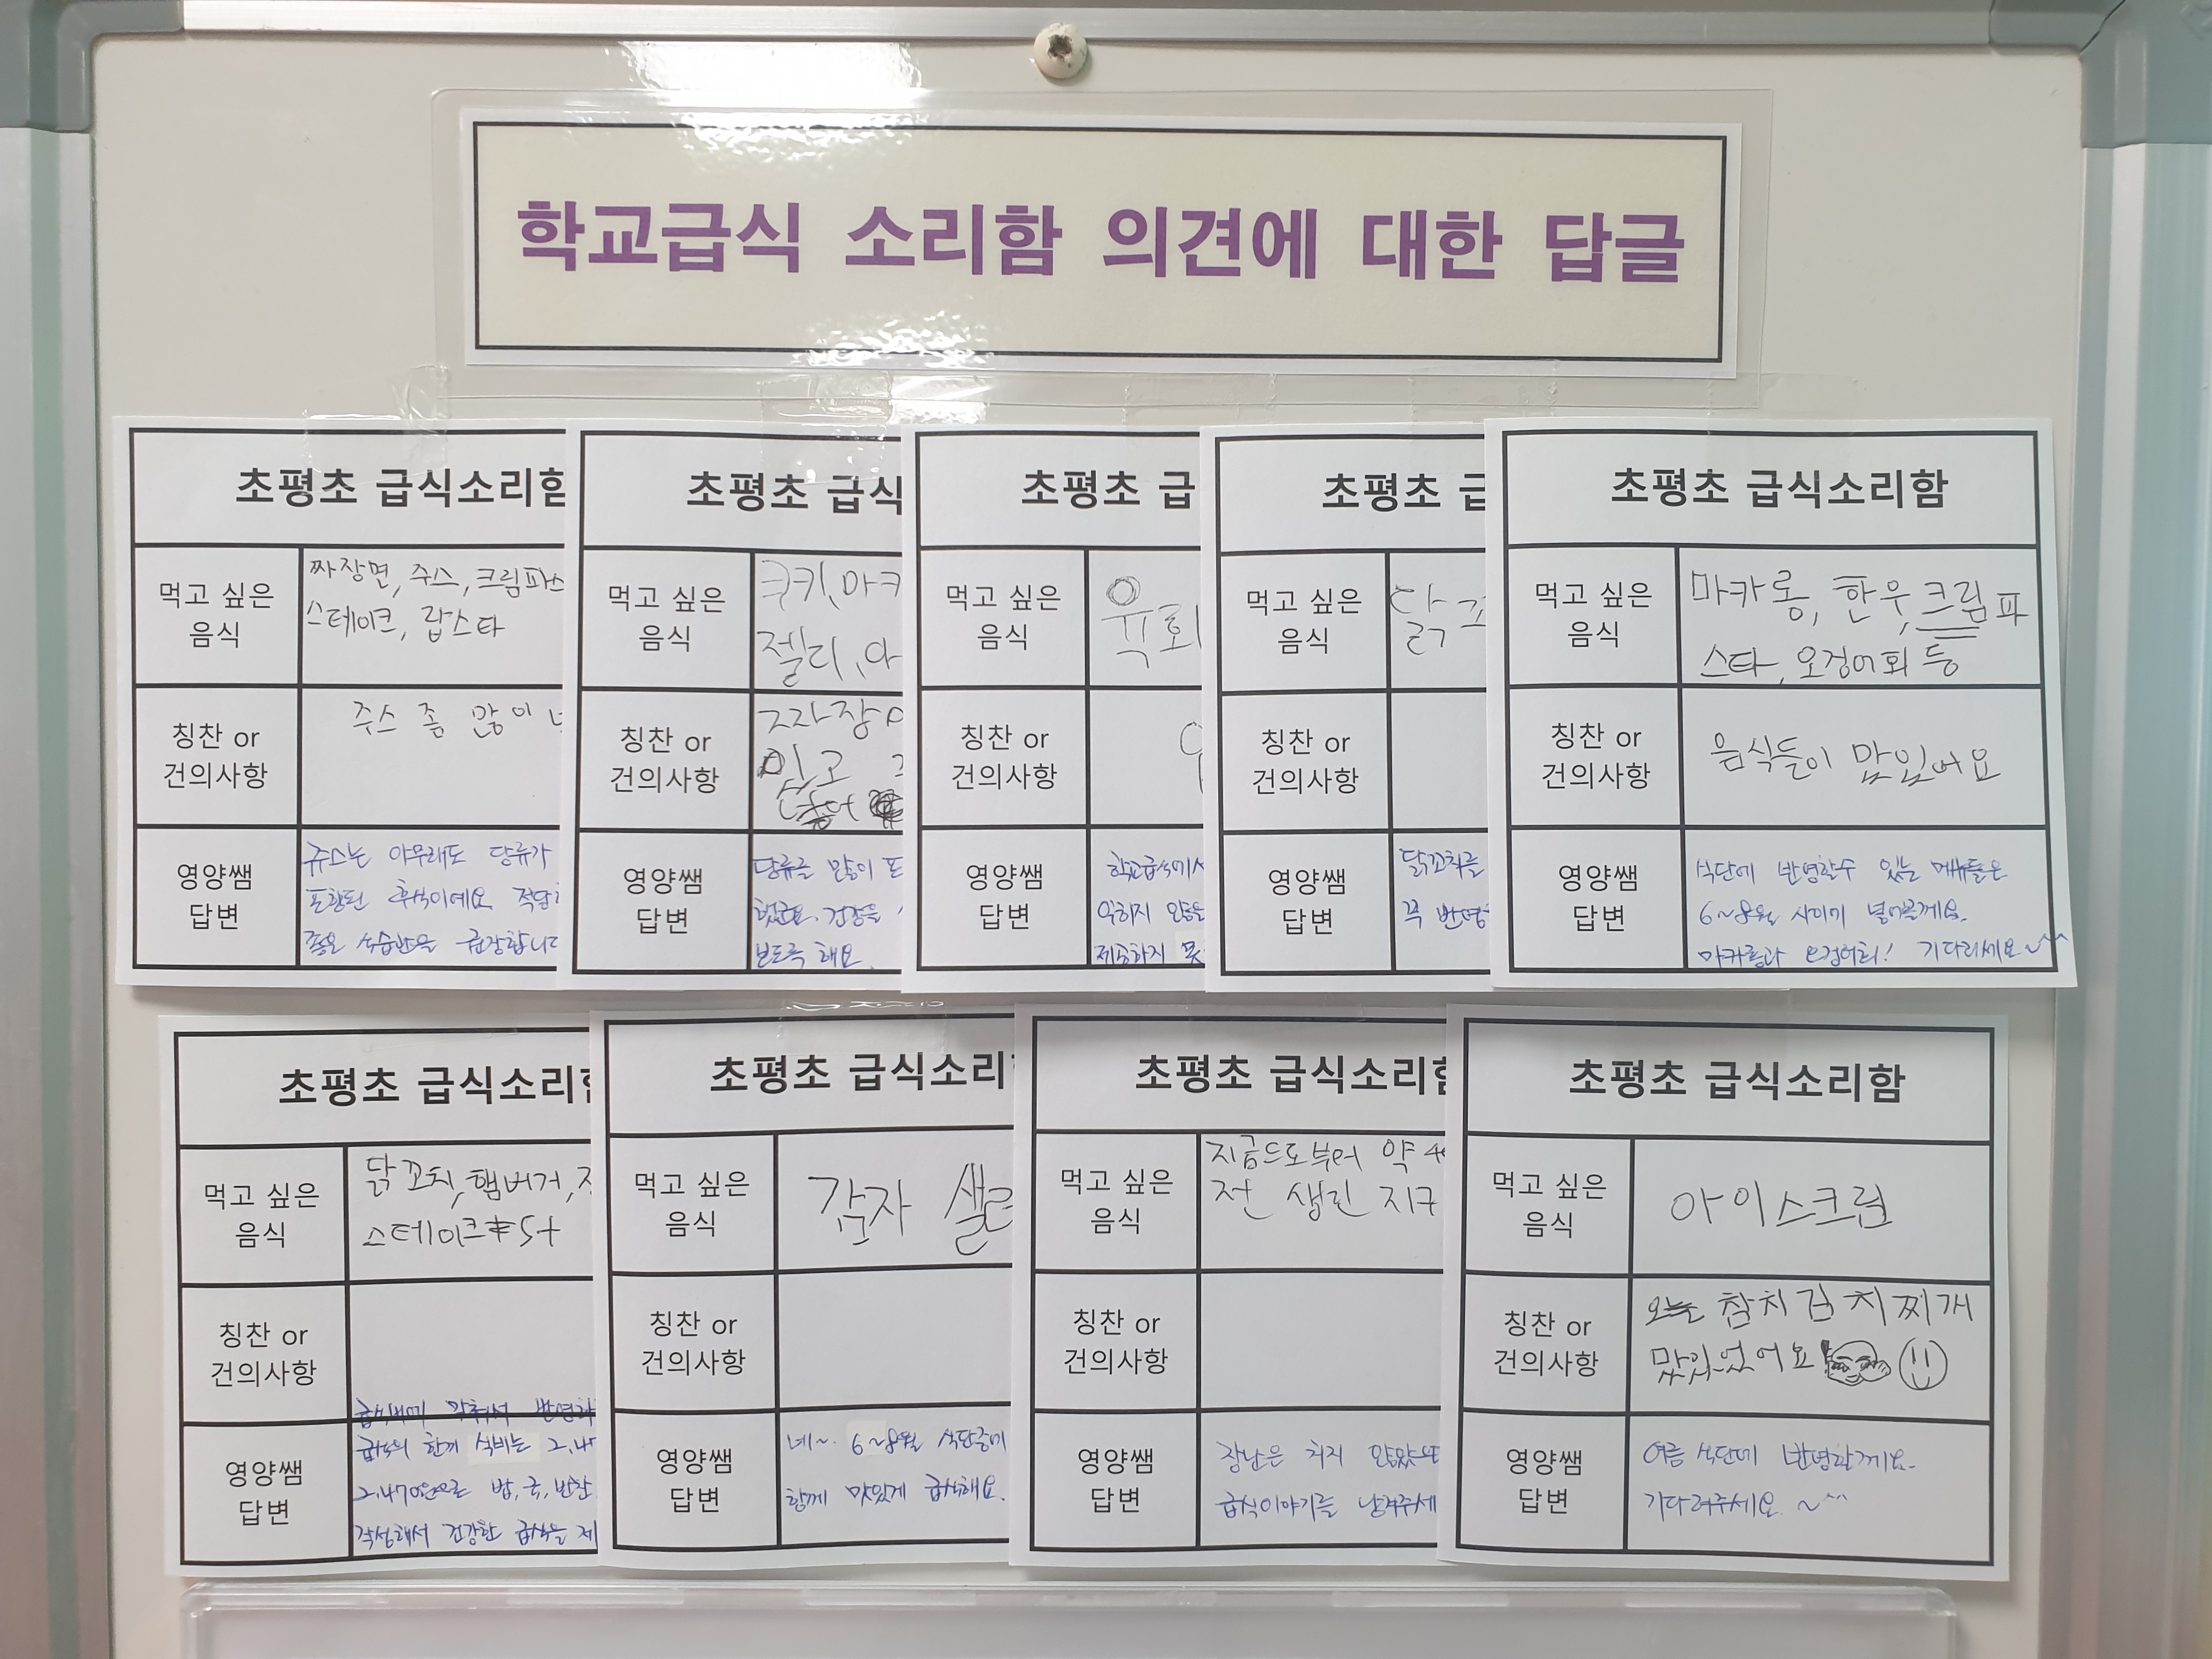 학교급식 소리함 의견에 대한 답글
초평초 급식소리함
먹고 싶은
음식
짜장면, 쥬스, 크림파스
스테이크, 랍스타
칭찬 or
건의사항
주스 좀 많이
영양쌤
답변
쥬스는 아무래도 당류가
포함된 후식이예요 적당히
좋은 식습관을 권장합니다
초평초 급식
먹고 싶은
음식
쿠키, 마카
젤리, 아
칭찬 or
건의사항
짜장
있고
영양쌤
답변
당류를 많이 포
건강을
보도록 해요.
초평초 급
먹고 싶은
음식
육회
칭찬 or
건의사항
영양쌤
답변
학교급식에서
익히지 않은
제공하지 못
초평초 급
먹고 싶은
음식
닭꼬
칭찬 or
건의사항
영양쌤
답변
닭꼬치를
꼭 반영
초평초 급식소리함
먹고 싶은
음식
마카롱, 한우, 크림 파
스타, 오징어회 등
칭찬 or
건의사항
음식들이 맛있어요
영양쌤
답변
식단에 반영할수 있는 메뉴들은
6~8월 사이에 넣어볼께요.
마카롱과 오징어회! 기다리세요~^^
초평초 급식소리함
먹고 싶은
음식
닭꼬치, 햄버거,
스테이크
칭찬 or
건의사항
영양쌤
답변
급식비에 맞춰서 반영하
급식의 한끼 식비는 2,47
2,470원으로 밥, 국, 반찬
작성해서 건강한 급식을 제
초평초 급식소리
먹고 싶은
음식
감자 샐러
칭찬 or
건의사항
영양쌤
답변
네~ 6~8월 식단중에
함께 맛있게 급식해요.
초평초 급식소리함
먹고 싶은
음식
지금으로부터 약 4
전 생긴 지구
칭찬 or
건의사항
영양쌤
답변
장난은 치지 않았으면
급식이야기를 남겨주세
초평초 급식소리함
먹고 싶은
음식
아이스크림
칭찬 or
건의사항
오늘 참치김치찌개
맛있었어요
영양쌤
답변
여름 식단에 반영할께요.
기다려주세요. ~^^